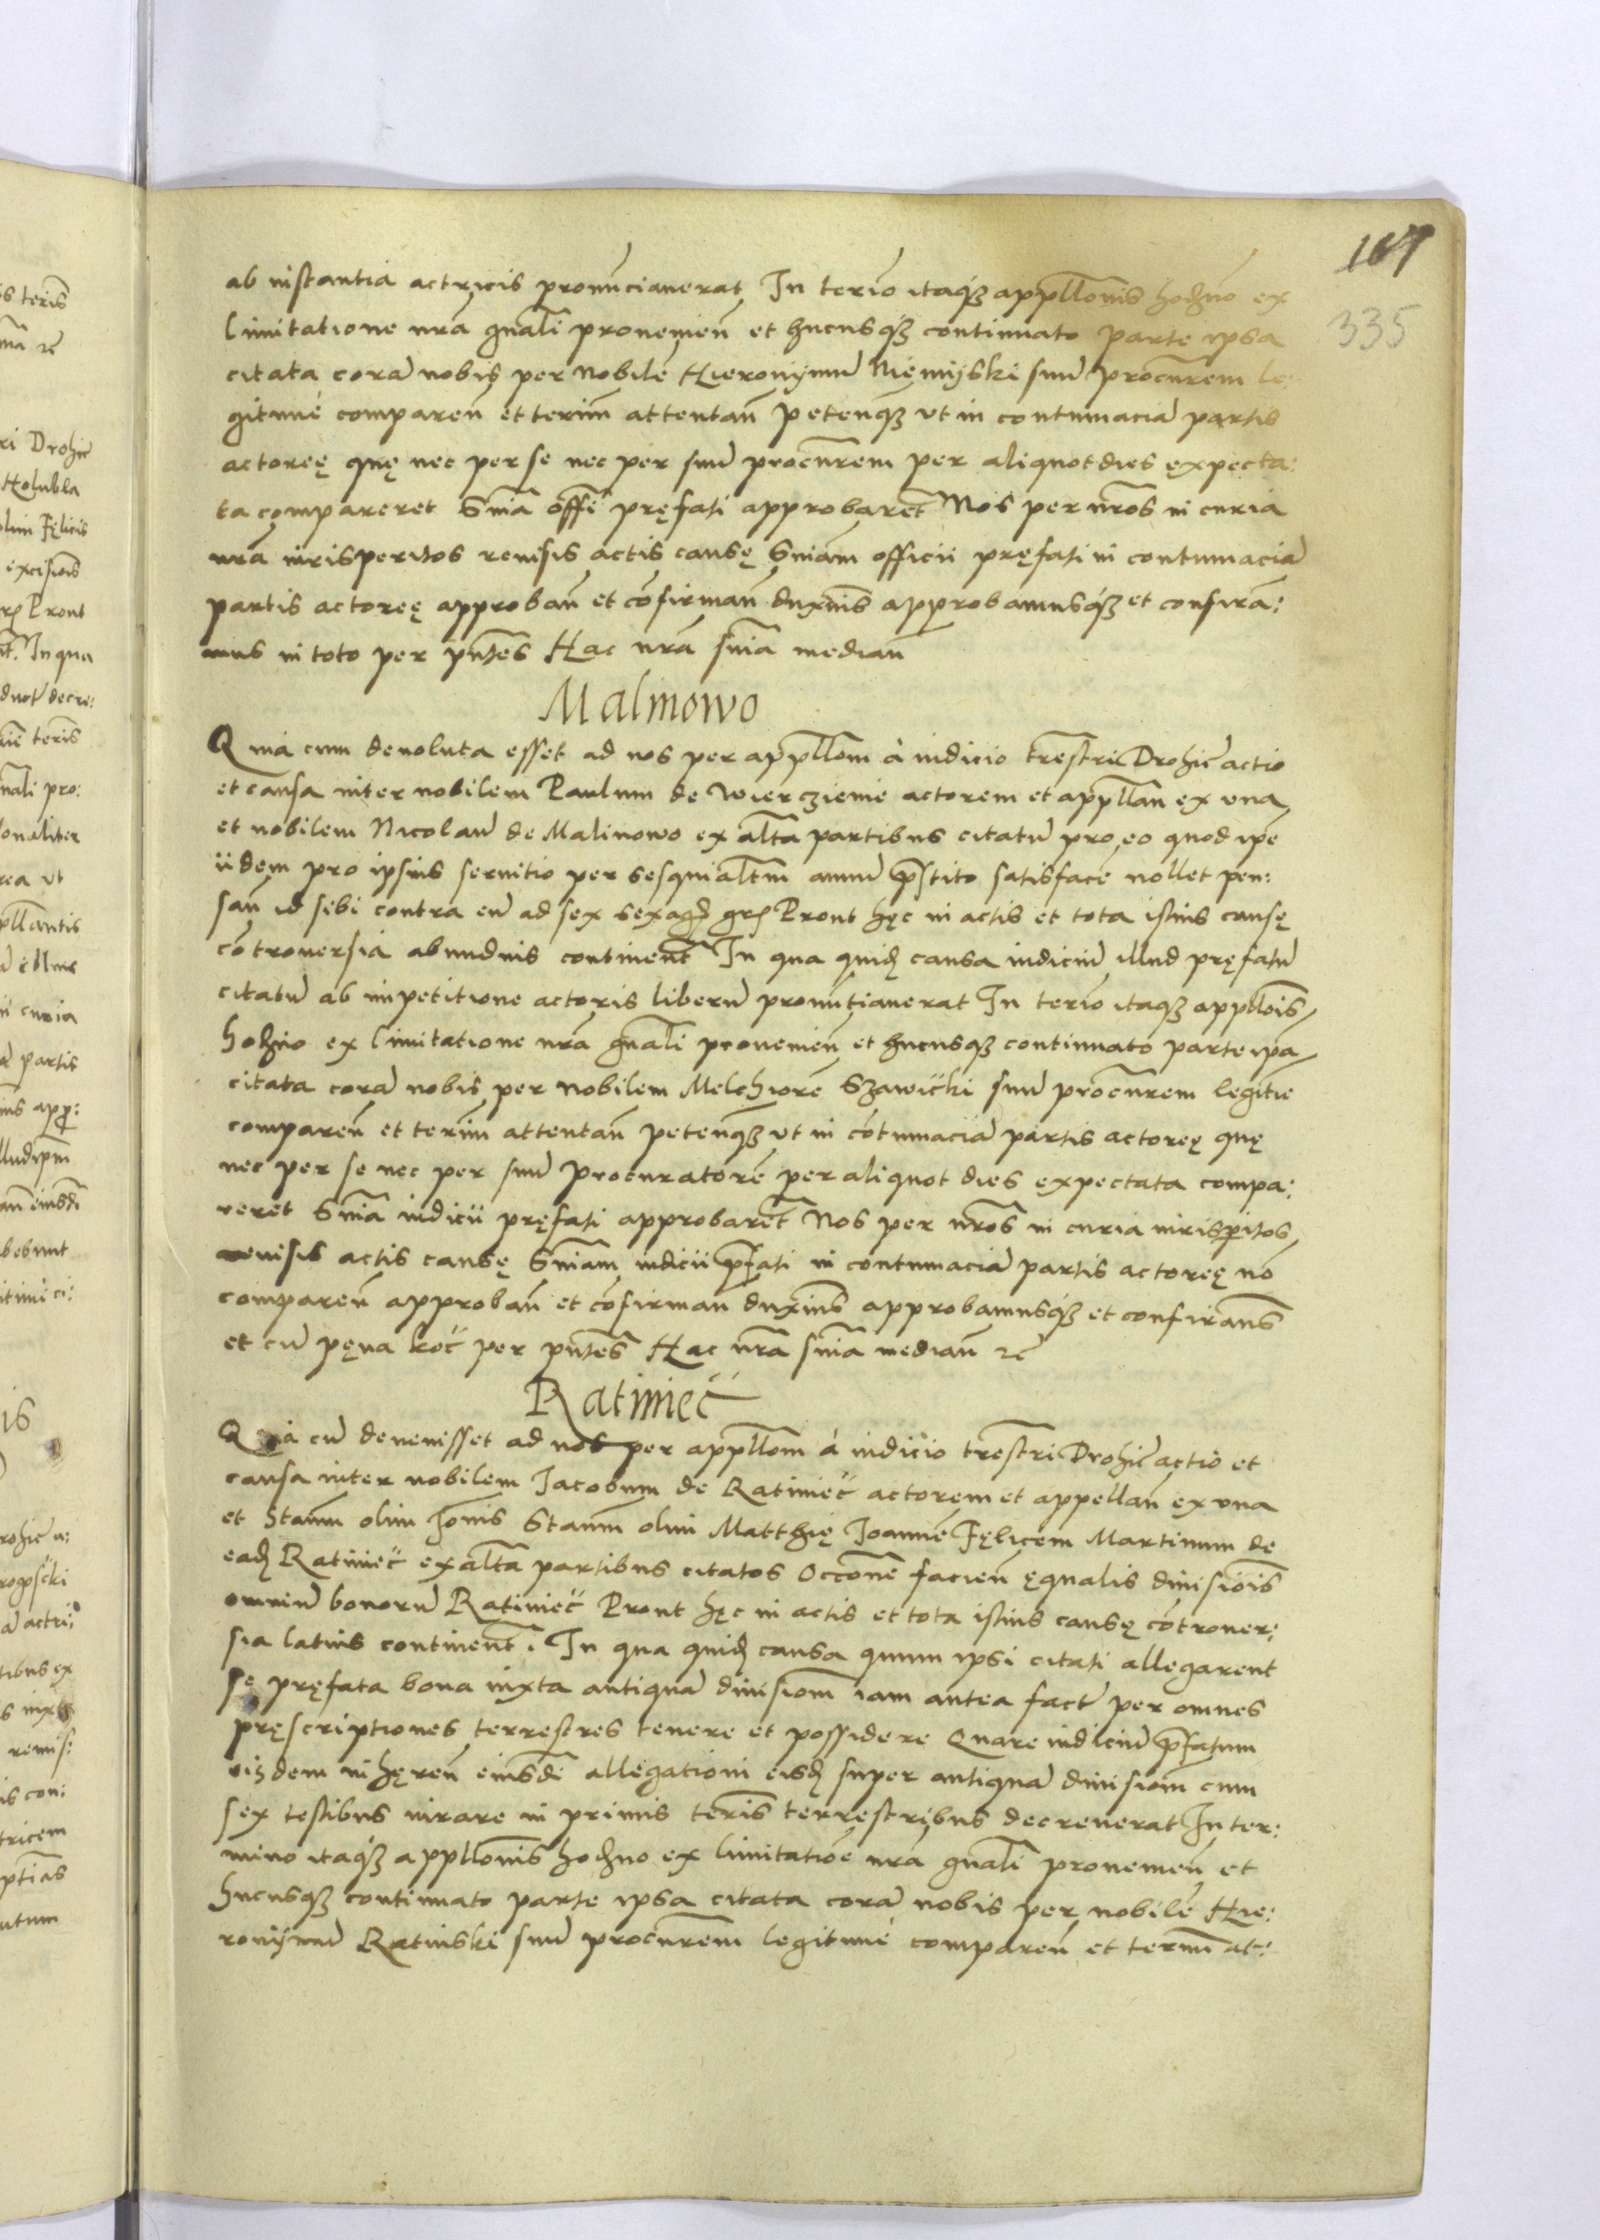 167
335
ab instantia actricis pronunciauerat In termo itaqz appllonis hodno ex
limitatione nra gnali prouenien et hucusqz continuato parte ipsa
citata cora nobis per nobile Hieronymu Niemijski suu procurem le
gitime comparen et termi attentan petenqz vt in contumacia partis
actoreę quę nec per se nec per suu procurem per aliquot dies expecta:
ta compareret Snia offi pręfati approbaret Nos per nros in curia
nra iurisperitos reuisis actis causę Sniam officii pręfati in contumacia
partis actoreę approban et cofirman duximus approbamusqz et confirma:
mus in toto per pntes Hac nra snia median
Malinowo
Quia cum deuoluta esset ad nos per appllom à iudicio trestri Drohic actio
et causa inter nobilem Paulum de Wierczienie actorem et appllan ex vna
et nobilem Nicolau de Malinowo ex alta partibus citatu pro eo quod ipe
iidem pro ipsius seruitio per sesquialtm annu pstito satisface nollet pen:
san id sibi contra eu ad sex sexag gr Prout hęc in actis et tota istius causę
cotrouersia abundius continent In qua quid causa iudiciu illud pręfatu
citatu ab impetitione actoris liberu pronuntiauerat In termo itaqz appllois
hodno ex limitatione nra gnali prouenien et hucusqz continuato parte ipa
citata cora nobis per nobilem Melchiore Szawicki suu procurem legitie
comparen et termi attentan petenqz vt in cotumacia partis actoreę quę
nec per se nec per suu procuratore per aliquot dies expectata compa:
reret Snia iudicii pręfati approbaret Nos per nros in curia iurispitos
reuisis actis causę Sniam iudicii pfati in contumacia partis actoreę no
comparen approban et cofirman duximus approbamusqz et confirmans
et cu pęna koc per pntes Hac nra snia median rc
Ratiniec
Quia cu deuenisset ad nos per appllom à iudicio trestri Drohic actio et
causa inter nobilem Jacobum de Ratiniec actorem et appellan ex vna
et Stanm olim Jonis Stanm olim Matthię Joanne Fęlicem Martinum de
ead Ratiniec ex alta partibus citatos Occone facien ęqualis diuisiois
omniu bonoru Ratiniec Prout hęc in actis et tota istius causę cotrouer:
sia latius continent. In qua quid causa quum ipsi citati allegarent
se pręfata bona iuxta antiqua diuisiom iam antea fact per omnes
pręscriptiones terrestres tenere et possidere Quare iudiciu pfatum
iisdem inhęren eiusde allegationi eisd super antiqua diuisiom cum
sex testibus iurare in primis termis terrestribus decreuerat In ter:
mino itaqz appllonis hodno ex limitatioe nra gnali prouenien et
hucusqz continuato parte ipsa citata cora nobis per nobile Hie:
ronijmu Ratinski suu procurem legitime comparen et termi at: